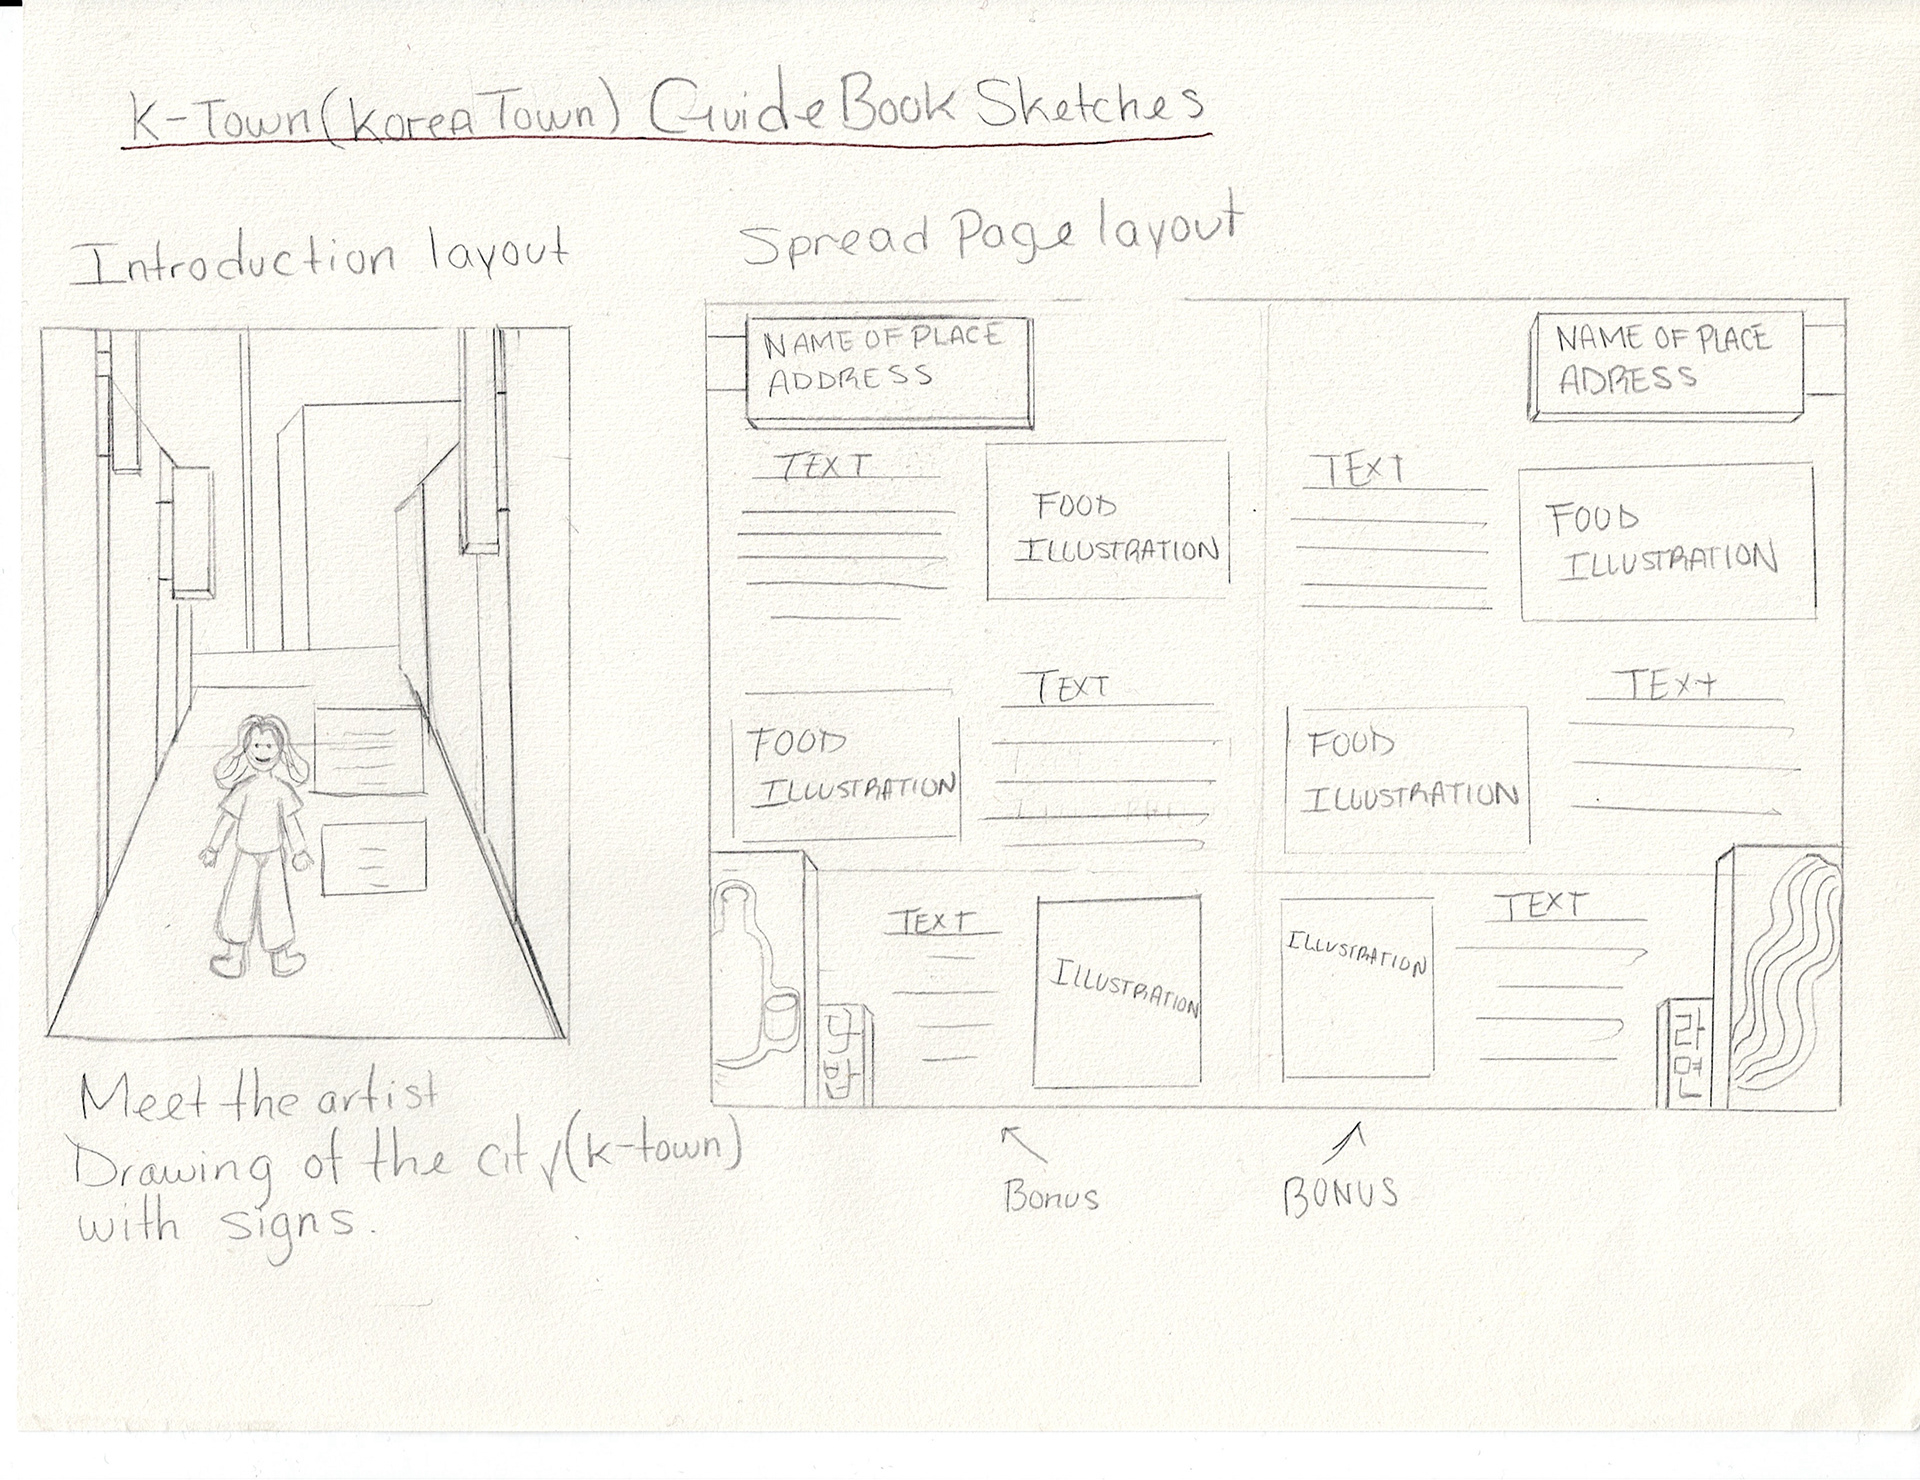 K-Town (Korea Town) Guide Book Sketches
Introduction layout
Meet the artist
Drawing of the city (k-town)
with signs.
Spread Page layout
NAME OF PLACE
ADDRESS
TEXT
FOOD
ILLUSTRATION
FOOD
ILLUSTRATION
TEXT
TEXT
ILLUSTRATION
NAME OF PLACE
ADRESS
TEXT
FOOD
ILLUSTRATION
FOOD
ILLUSTRATION
TEXT
ILLUSTRATION
TEXT
라
면
Bonus
BONUS